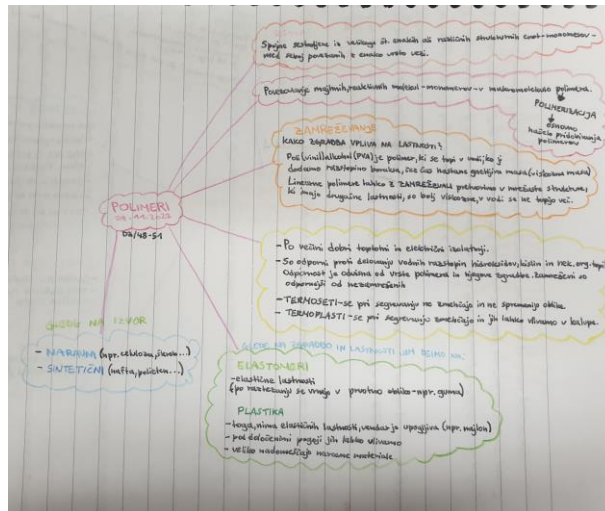 Spojine sestavljene iz velikega št. enakih ali različnih strukturnih enot-monomerov-
med seboj povezanih z enako vrsto vezi.
Povezovanje majhnih, reaktivnih molekul-monomerov-v makromolekulo polimera.
POLIMERIZACIJA
osnovno
načelo pridobivanja
polimerov
ZAMREŽEVANJE
KAKO ZGRADBA VPLIVA NA LASTNOSTI?
Poli(vinil)alkohol (PVA) je polimer, ki se topi v vodi, ko ji
dodamo raztopino boraksa, pa nastane gostljiva masa (viskozna masa)
Linearne polimere lahko z ZAMREŽEVANJ pretvorimo v mrežaste strukture,
ki imajo drugačne lastnosti, so bolj viskozne, v vodi se ne topijo več.
POLIMERI
02/48-51
- Po večini dobri toplotni in električni izolatorji.
- So odporni proti delovanju vodnih raztopin hidroksidov, kislin in nek. org. topil
Odpornost je odvisna od vrste polimera in njegove zgradbe. Zamreženi so
odpornejši od nezamreženih
- TERMOSETI-se pri segrevanju ne zmehčajo in ne spremenijo oblike.
- TERMOPLASTI-se pri segrevanju zmehčajo in jih lahko vlivamo v kalupe.
GLEDE NA IZVOR
- NARAVNI (npr. celuloza, škrob...)
- SINTETIČNI (nafta, polieten...)
GLEDE NA ZGRADBO IN LASTNOSTI JIH DELIMO NA:
ELASTOMERI
- elastične lastnosti
(po raztezanju se vrnejo v prvotno obliko-npr. guma)
PLASTIKA
- toga, nima elastičnih lastnosti, vendar je upogljiva (npr. najlon)
- pod določenimi pogoji jih lahko vlivamo
- veliko nadomeščajo naravne materiale.